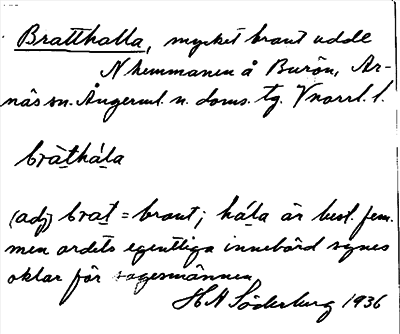 Bratthalla, mycket brant udde
N hemmanen å Burön, Ar-
näs sn. Ångerml. n. doms. tg. Vnorrl. l.
bràthá̱la
(adj) bra̱t = brant; há̱la är best. fem.
men ordets egentliga innebörd synes
oklar för sagesmännen
H A Söderberg 1936